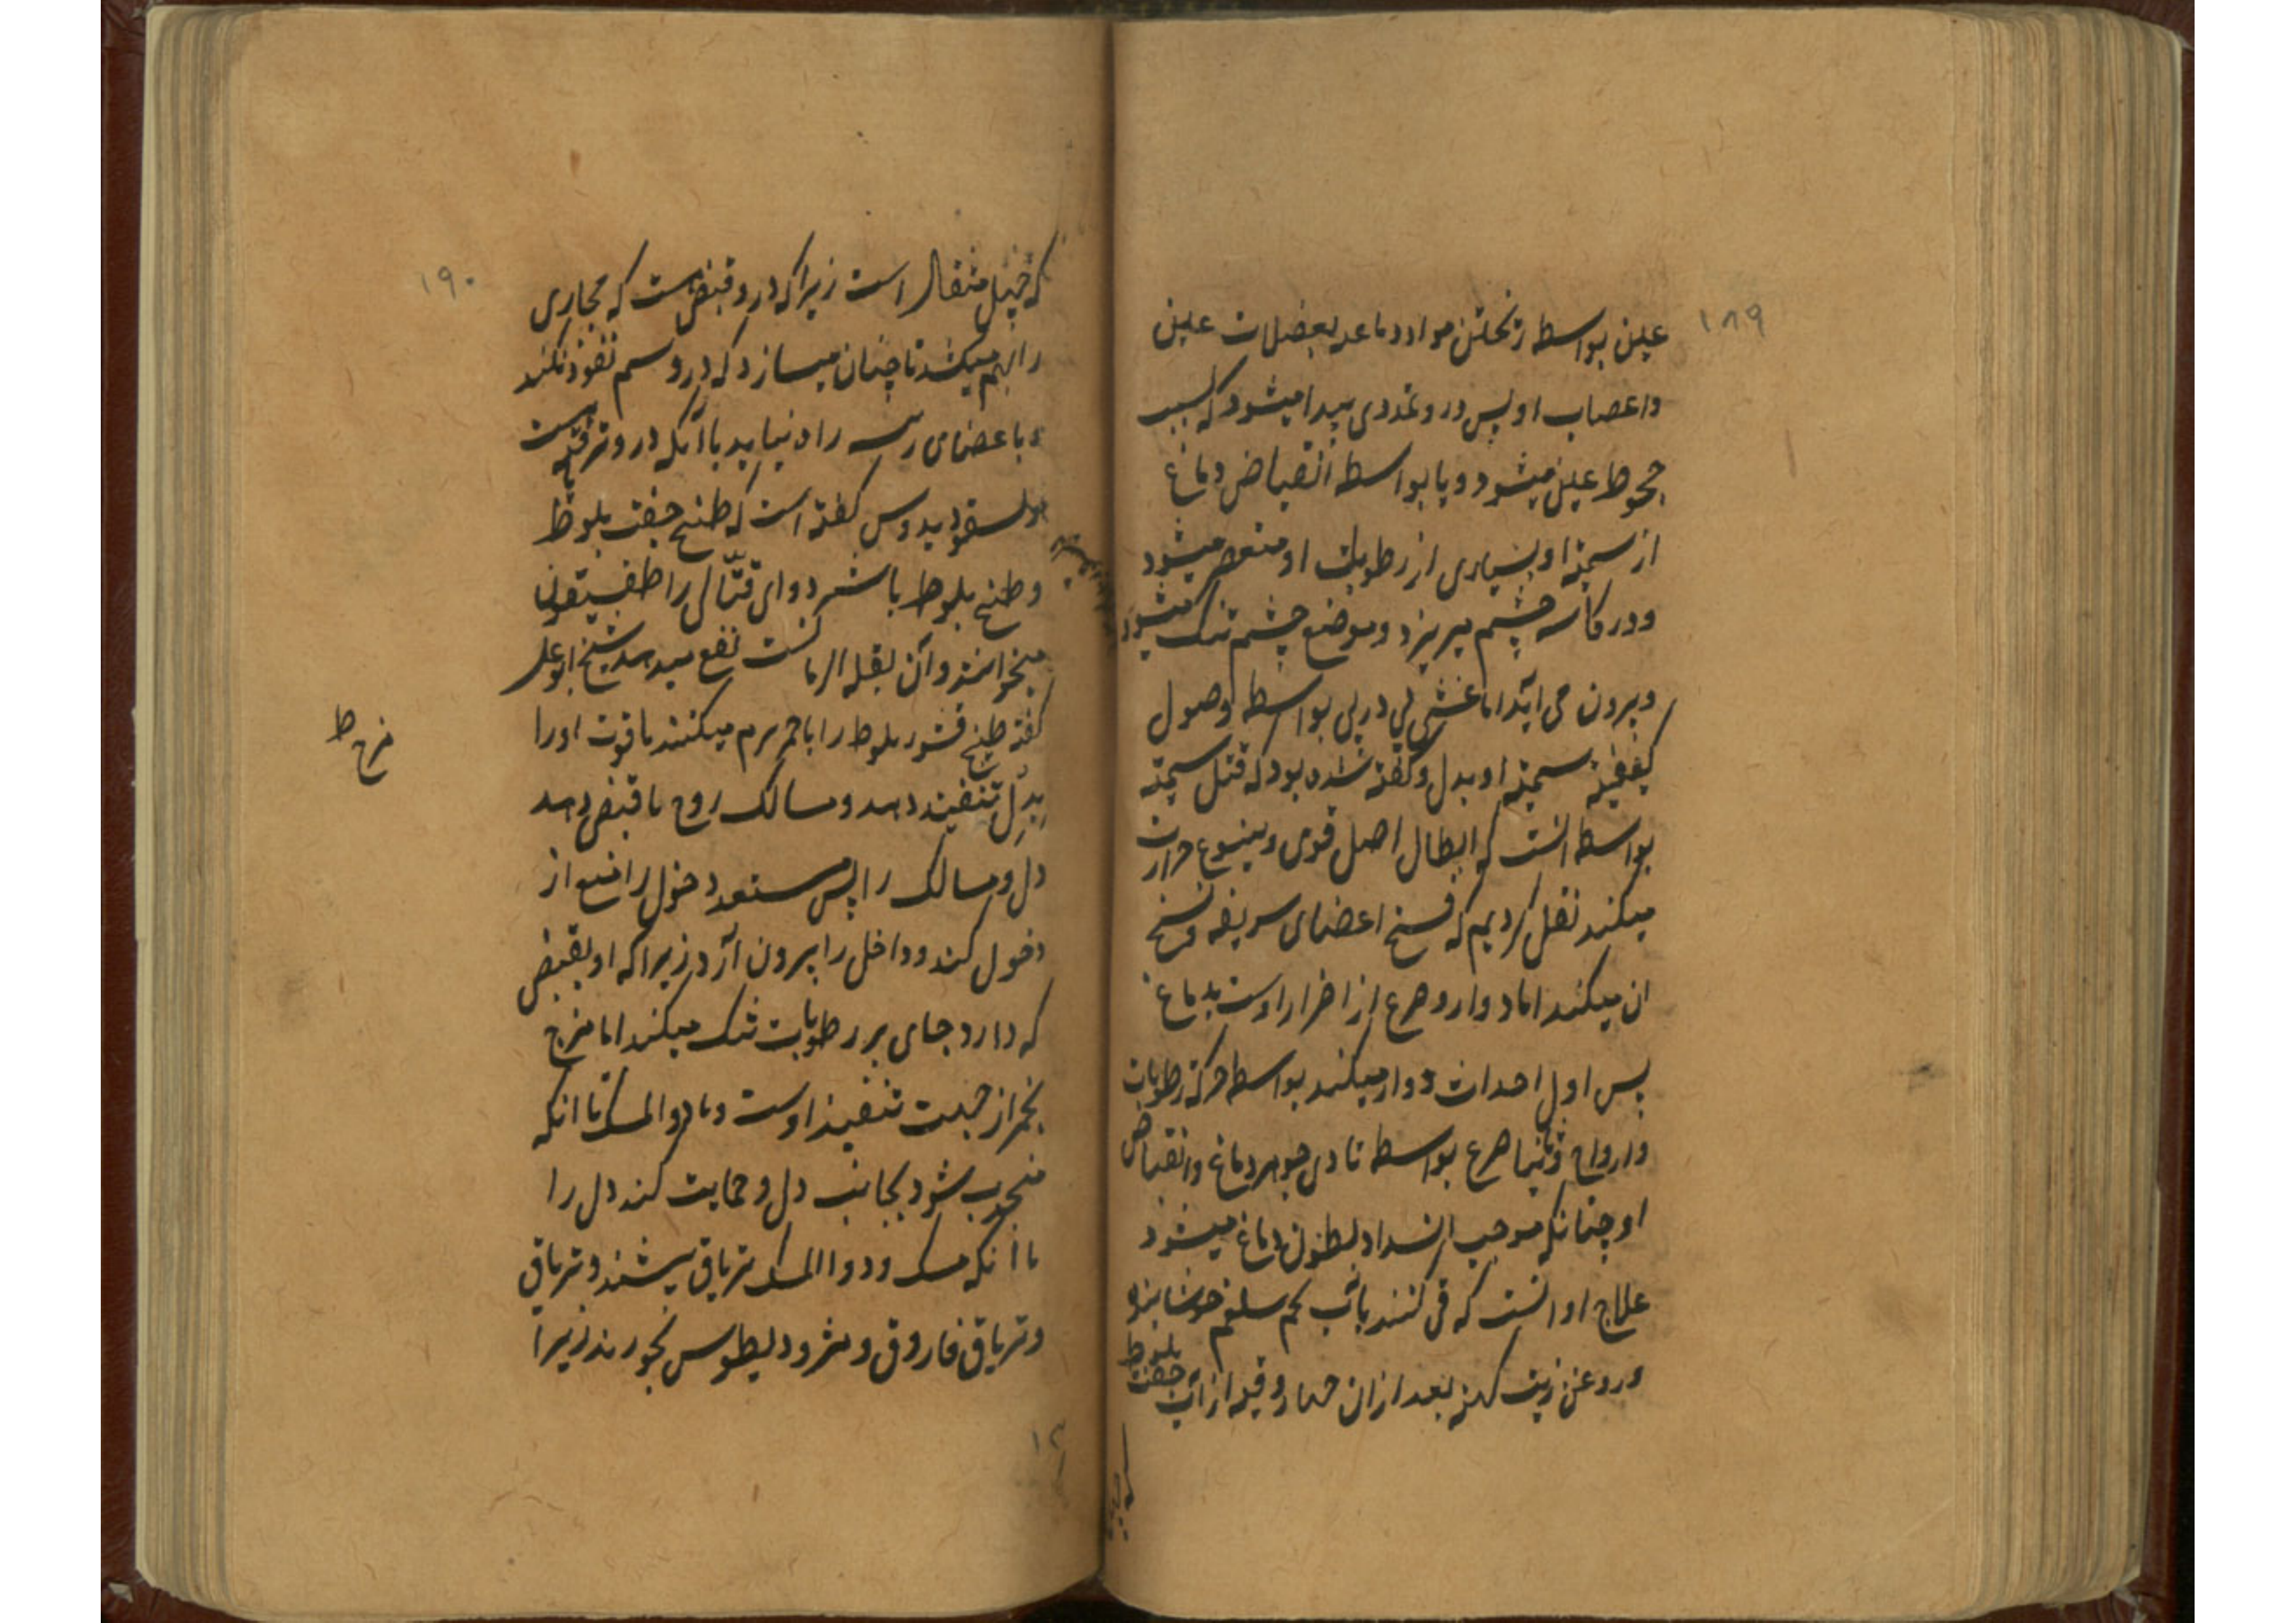 ۱۸۹
عین بواسطه ریختن مواد دماعیه بعضلات عین
واعصاب او پس درو تمددی پیدا میشود که سبب
جحوظ عین میشود و یا بواسطه انقباض دماغ
از سمیّة او بسیاری از رطوبات او منعصر میشود
ودر کاسه چشم میریزد وموضع چشم تنک میشود
وبیرون می آید اما غشی پی در پی بواسطه وصول
کیفیّة سمیّة او بدل وکفته شده بود که قتل سمیّه
بواسطه انست که ابطال اصل قوی وینبوع حرارت
میکند نقل کردیم که فسخ اعضای شریفه وفسخ
ان میکند اما دوار وصرع از اضرار اوست بدماغ
پس اول احداث دوار میکند بواسطه حرکة رطوبات
وارواح وثانیا صرع بواسطه تادی جوهر دماغ وانقباض
او چنانکه موجب انسداد بطون دماغ میشود
علاج او انست که قی کنند باب تخم سلغم جوشانیده
وروغن زیت کهنه بعد ازان چهار وقیه از آب جفت بلوط
۱۹۰
که چهل مثقال است زیرا که درو قبض است که مجاری
را بهم میکشد تا چنان میسازد که درو سم نفوذ نکند
وباعضای رسه راه نیابد با آنکه درو تریاقیه است
ولسقوریدوس کفته است که طبیخ جفت بلوط
وطبیخ بلوط با شیر دوای قتّالی را طفیقون
میخوانند وآن بقلة الرماست نفع میدهد شیخ ابو علی
کفته طبیخ قشور بلوط را با خمر برم میکنند تا قوت او را
بدل تنفیذ دهد ومسالک روح تا قبض دهد
دل ومسالک را پس مستعد دخول را منع از
دخول کند وداخل را بیرون آرد زیرا که او بقبض
که دارد جای بر رطوبات تنک میکند اما مزج
بخمر از جهت تنفیذ اوست وبا دوا المسک تا انکه
منجذب شود بجانب دل وحمایت کند دل را
با آنکه مسک ودوا المسک تریاق بیشند وتریاق
وتریاق فاروق ومثرودیطوس بخورند زیرا
مزج ط
۱۲